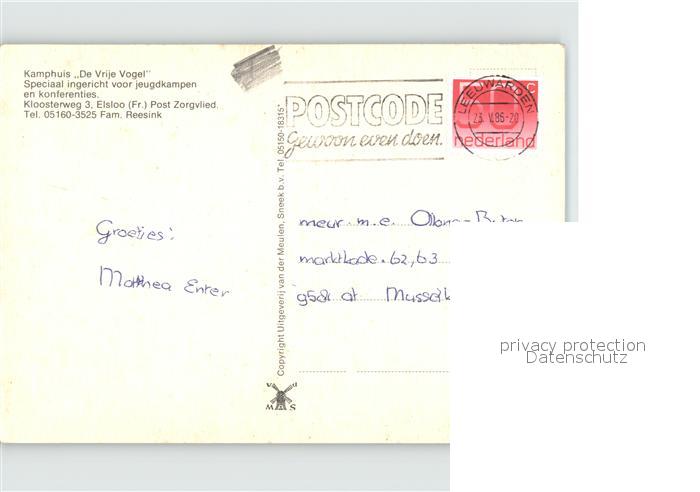 Kamphuis „De Vrije Vogel"
Speciaal ingericht voor jeugdkampen
en konferenties.
Kloosterweg 3, Elsloo (Fr.) Post Zorgvlied.
Tel. 05160-3525 Fam. Reesink
POSTCODE
Gewoon even doen.
LEEUWARDEN
23. V.86-20
50 c
nederland
Copyright Uitgeverij van der Meulen, Sneek b.v. Tel. 05150-18316*
Groetjes:
Matthea Enter
meur. m.e.
marktkade. 62,63
9581 at
v d
M S
privacy protection
Datenschutz